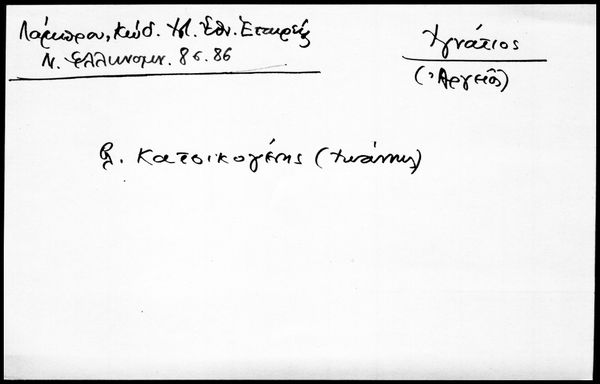 Λάμπρου, Κώδ. Ἱστ. Ἐθν. Ἑταιρείας
Ν. Ἑλληνομν. 8 σ. 86
Ἰγνάτιος
(ὁ Ἀργεῖος)
βλ. Κατσικογένης (Ἰωάννης)